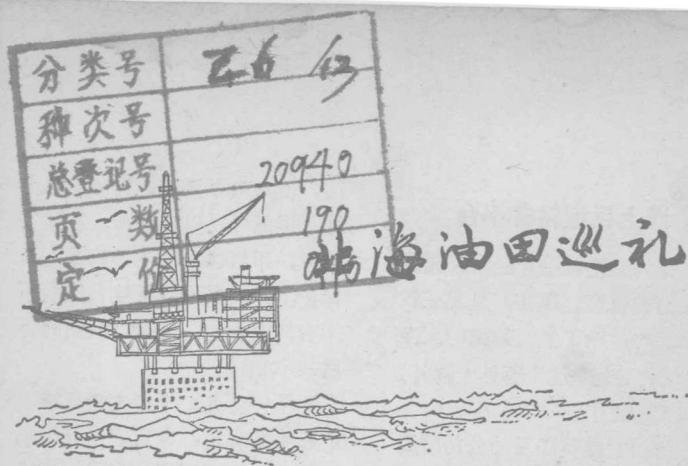 分类号
种次号
总登记号 20940
页数 190
定价
海油田巡礼